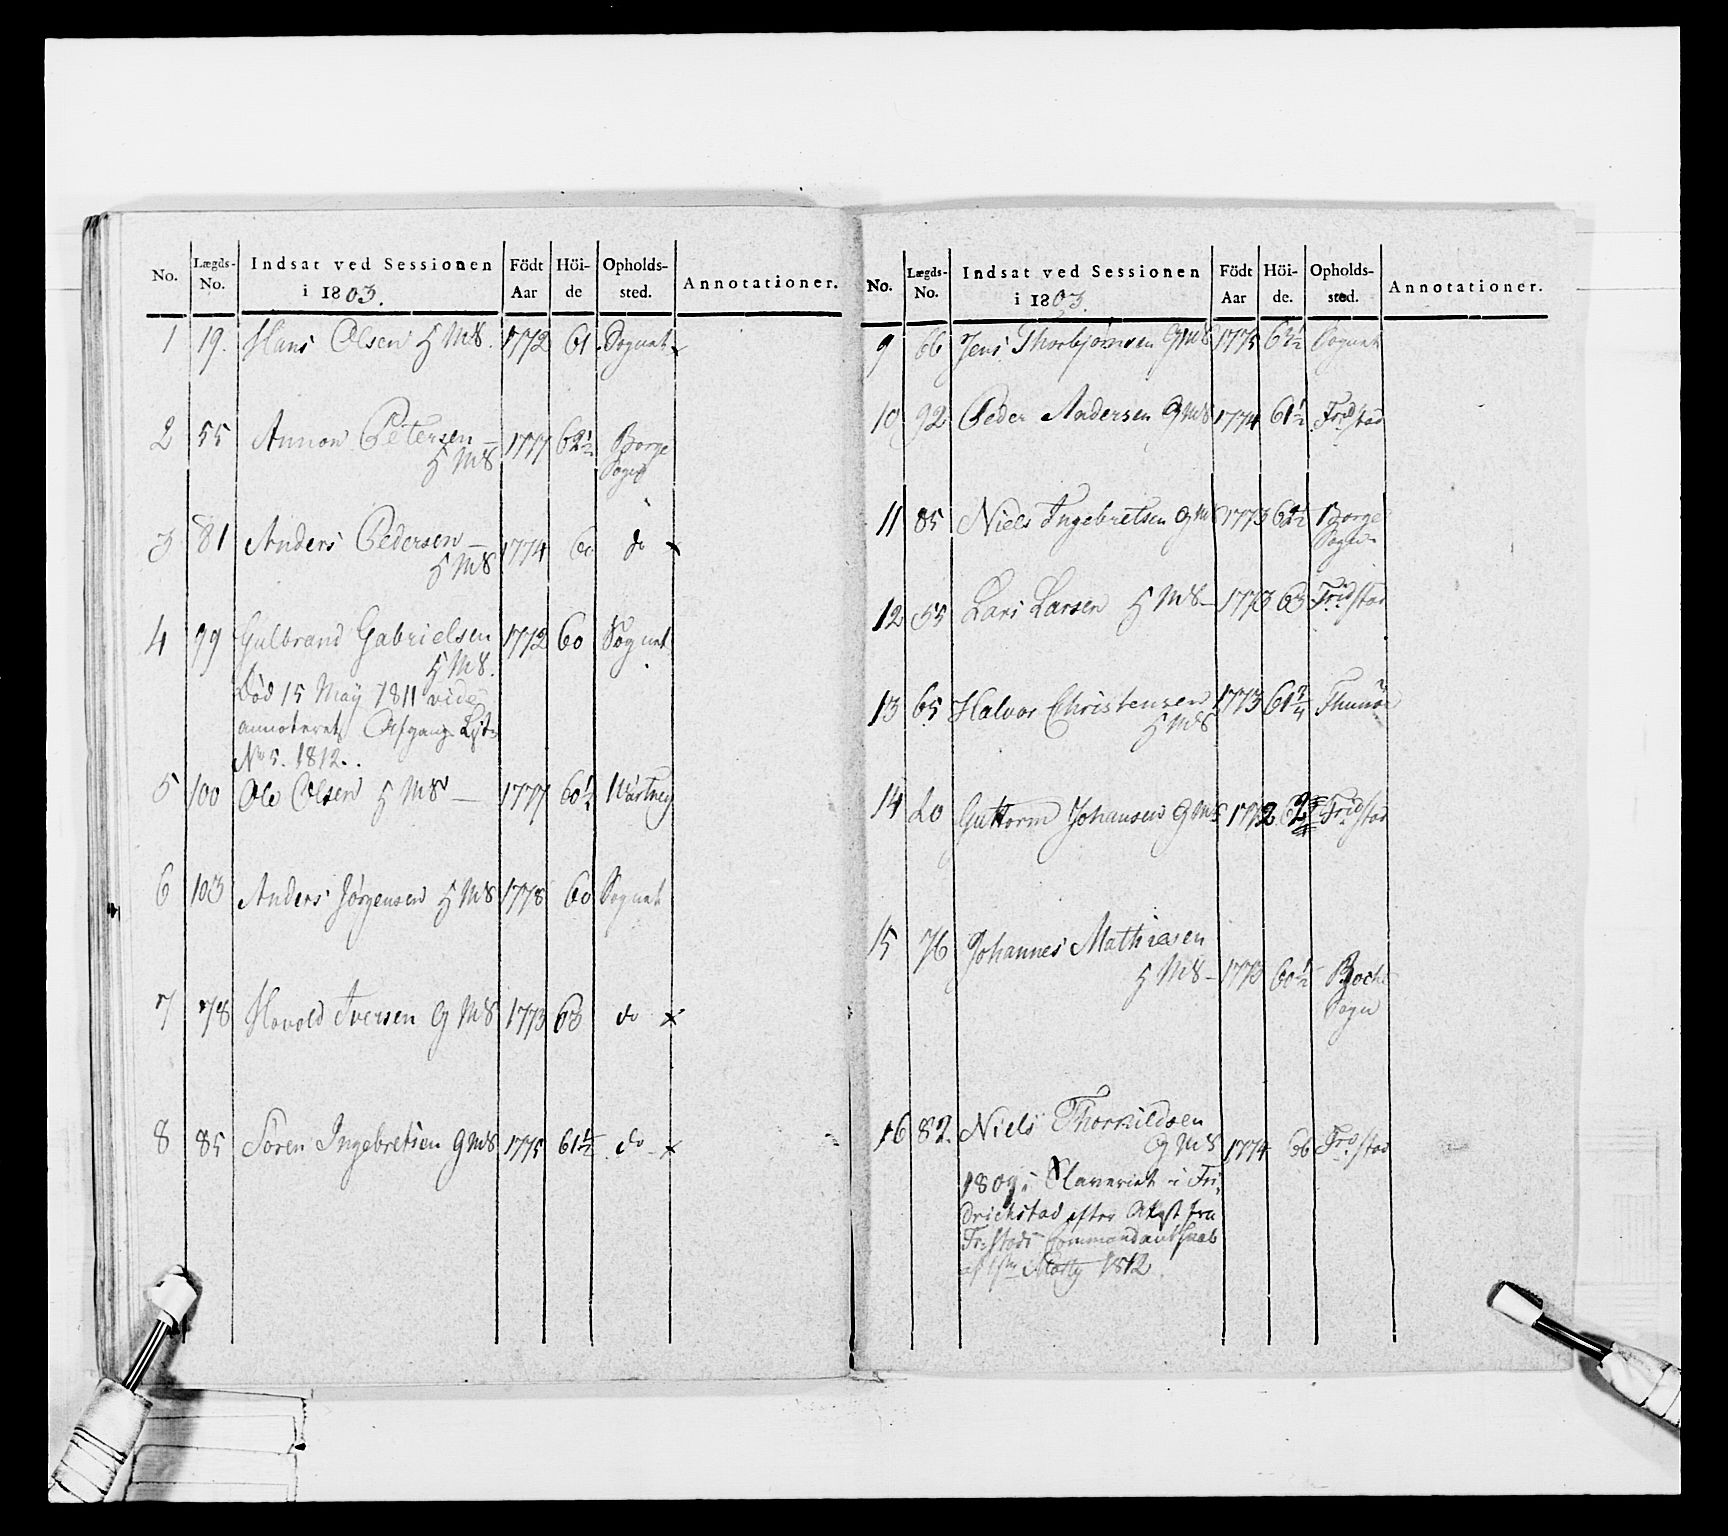 No. Lægds-No. Indsat ved Sessionen i 1803. Födt Aar Höi-de Opholds-sted. Annotationer.
1 19. Hans Olsen G M8. 1772 61 Sognet x
2 55 Amon Petersen – 1777 62½ Borge
G M8 Sogn
3 81 Anders Pedersen – 1774 60 do x
G M8
4 99 Gulbrand Gabrielsen 1772 60 Sognet
G M8.
Död 15 May 1811 vide
annoteret Afgangs List
No 5. 1812.
5 100 Ole Olsen G M8 – 1777 60½
6 103 Anders Jörgensen G M8 1778 60 Sognet
7 78 Havold Iversen G M8 1773 63 do x
8 85 Sören Ingebretsen G M8 1775 61½ do x
No. Lægds-No. Indsat ved Sessionen i 1803. Födt Aar Höi-de. Opholds-sted. Annotationer.
9 66 Jens Thorbjørnsen G M8 1775 Sognet
10 92 Peder Andersen G M8 1774 61½ Fridstad
11 85 Niels Ingebretsen G M 1773 62½ Borge
Sogn
12 55 Lars Larsen G M8 – 1773 63 Fridstad
13 65 Halvor Christensen 1773 61¾ Thunöe
G M8
14 20 Guttorm Johansen G M8 1772 Fridstad
15 76 Johannes Mathiesen
G M8 – 1773 60½
Sogn
16 82. Niels Thorkildsen
G M8 1774 Fr:stad
1809 i Slaveriet i Fri-
drichstad efter Attest fra
Fr:stads Commandantskab
af 1812.